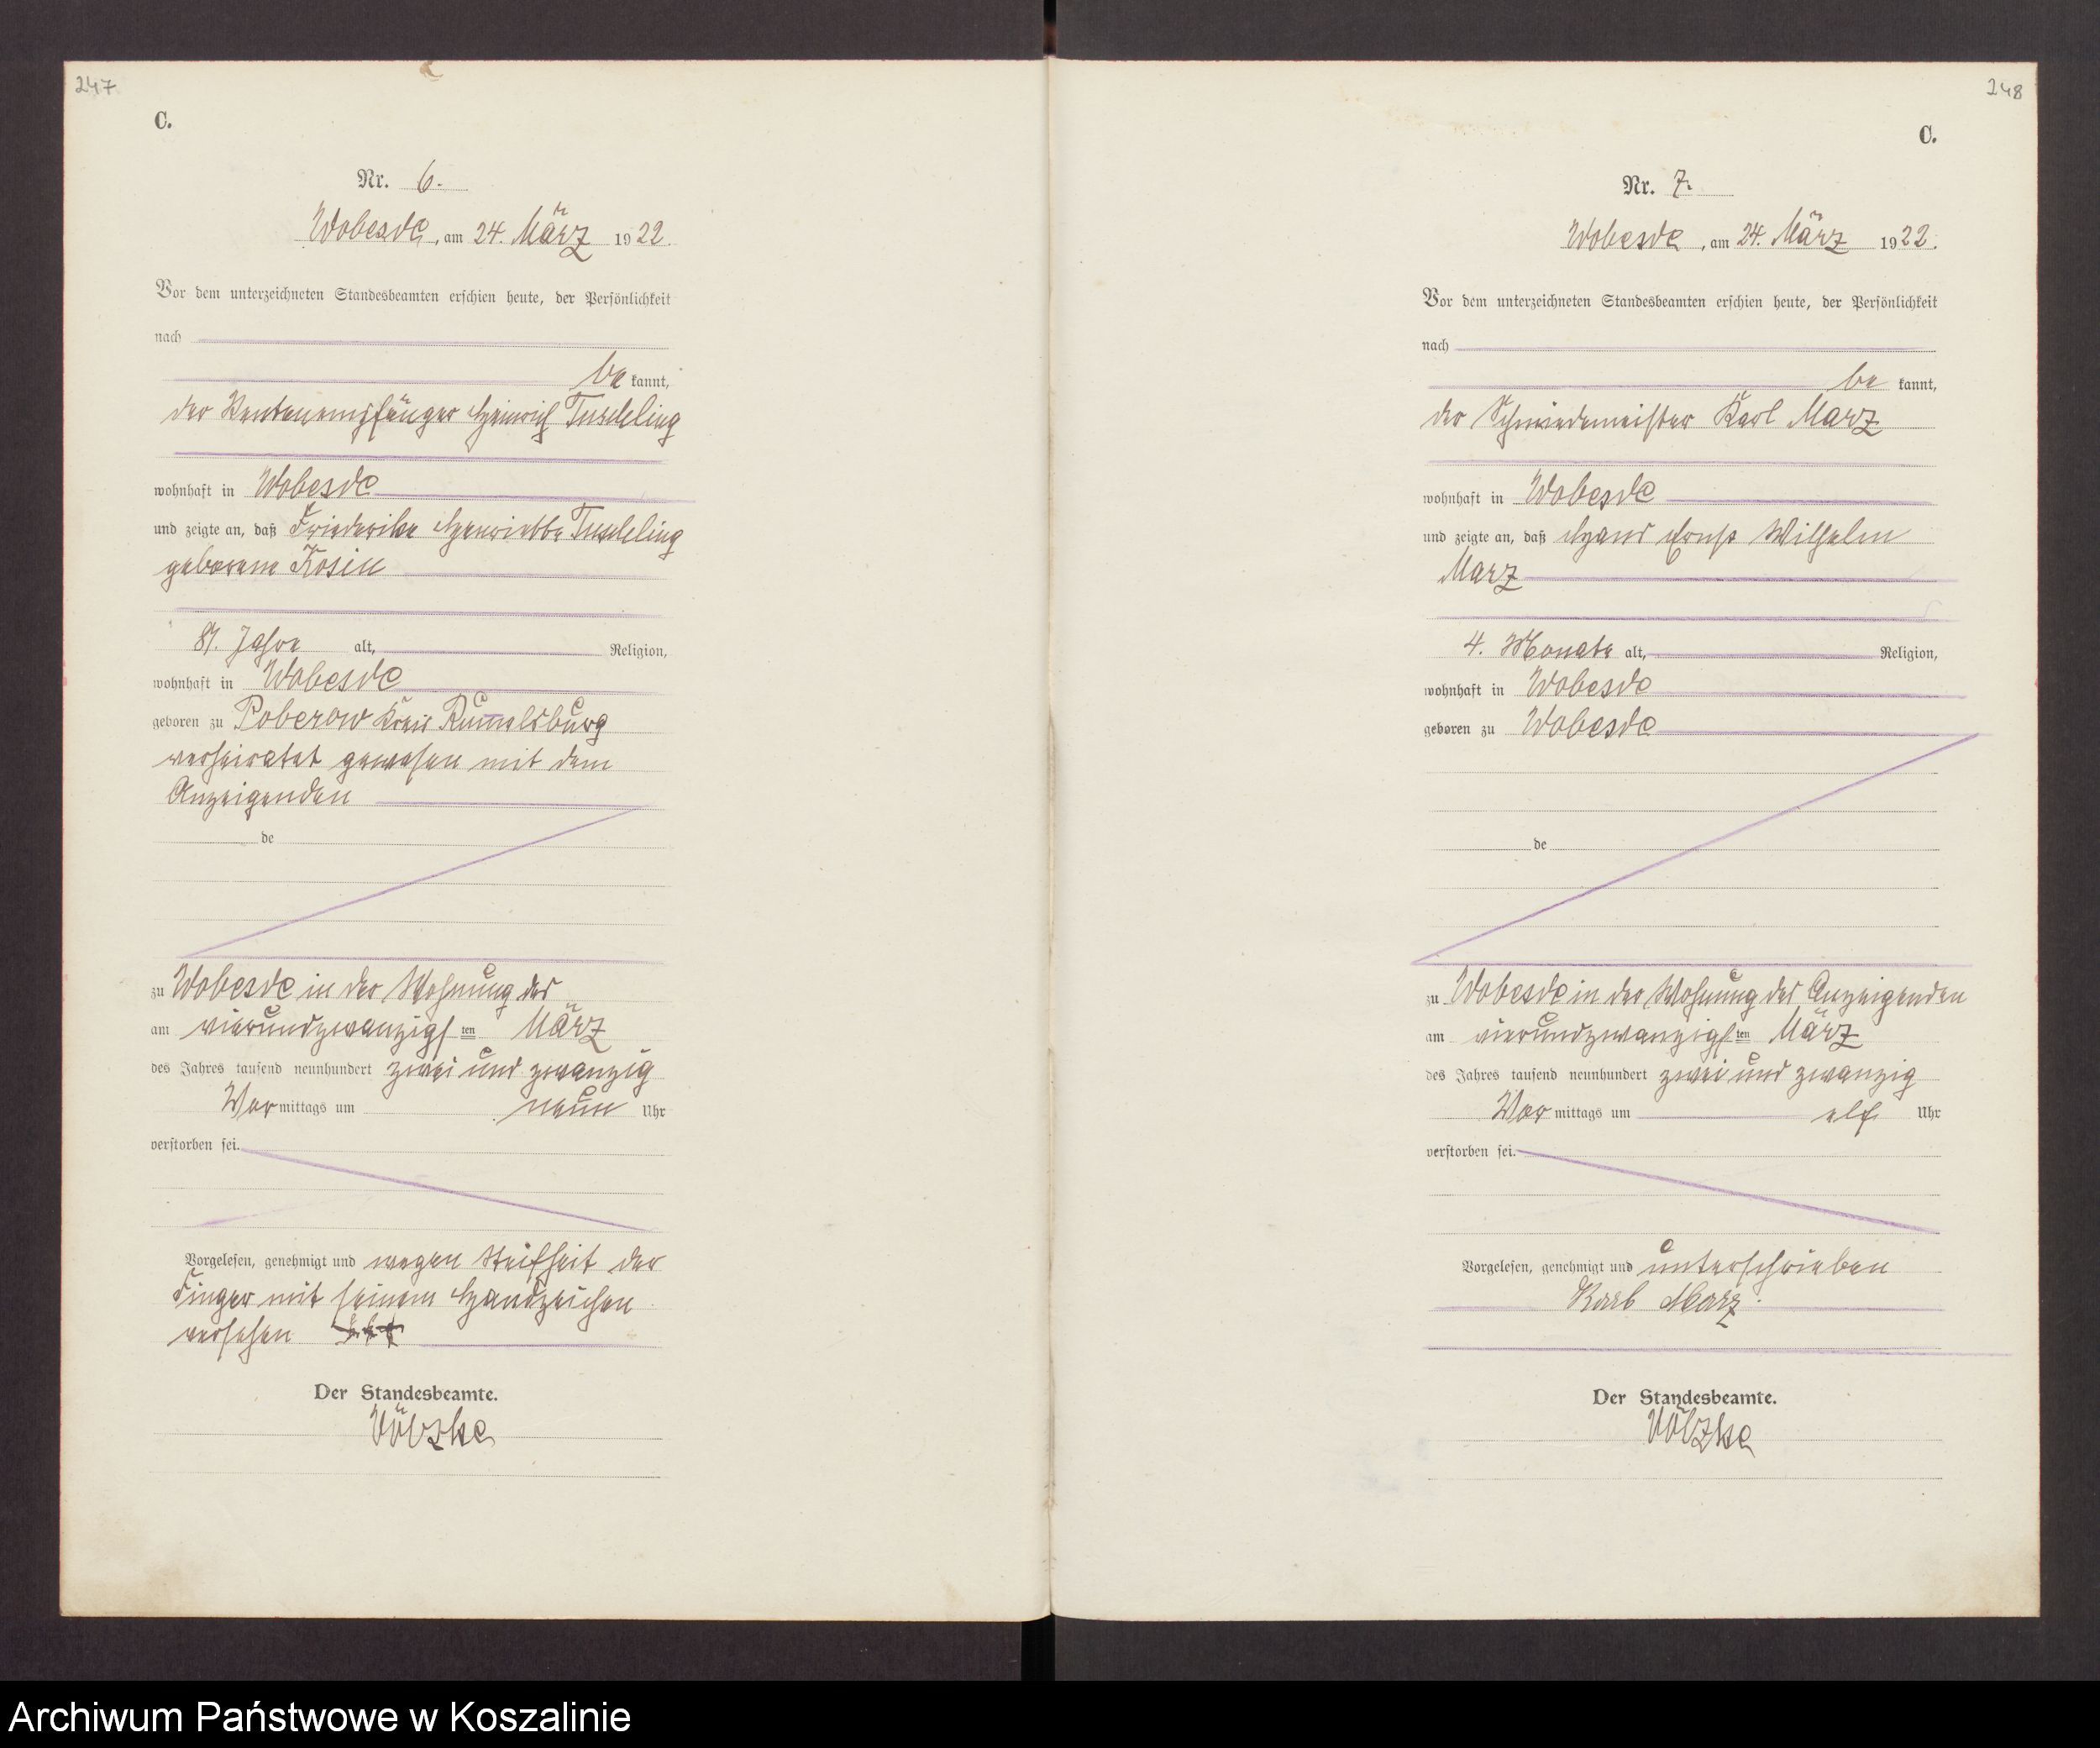 247
C.
Nr. 6.
Wobesde, am 24. März 1922.
Vor dem unterzeichneten Standesbeamten erschien heute, der Persönlichkeit
nach
be kannt,
der Rentenempfänger Heinrich
wohnhaft in Wobesde
und zeigte an, daß Friederike Henriette
geborene Kosin
81. Jahre alt, Religion,
wohnhaft in Wobesde
geboren zu Poberow Kreis Rummelsburg
verheiratet gewesen mit dem
Anzeigenden
de
zu Wobesde in der Wohnung des
am vierundzwanzigs ten März
des Jahres tausend neunhundert zwei und zwanzig
Vor mittags um neun Uhr
verstorben sei.
Vorgelesen, genehmigt und wegen Steifheit der
Finger mit seinem Handzeichen
versehen +++
Der Standesbeamte.
Völzke
248
C.
Nr. 7.
Wobesde, am 24. März 1922.
Vor dem unterzeichneten Standesbeamten erschien heute, der Persönlichkeit
nach
be kannt,
der Schmiedemeister Karl Marz
wohnhaft in Wobesde
und zeigte an, daß Hans Ernst Wilhelm
Marz
4. Monate alt, Religion,
wohnhaft in Wobesde
geboren zu Wobesde
de
zu Wobesde in der Wohnung des Anzeigenden
am vierundzwanzigs ten März
des Jahres tausend neunhundert zwei und zwanzig
Vor mittags um elf Uhr
verstorben sei.
Vorgelesen, genehmigt und unterschrieben
Karl Marz.
Der Standesbeamte.
Völzke
Archiwum Państwowe w Koszalinie